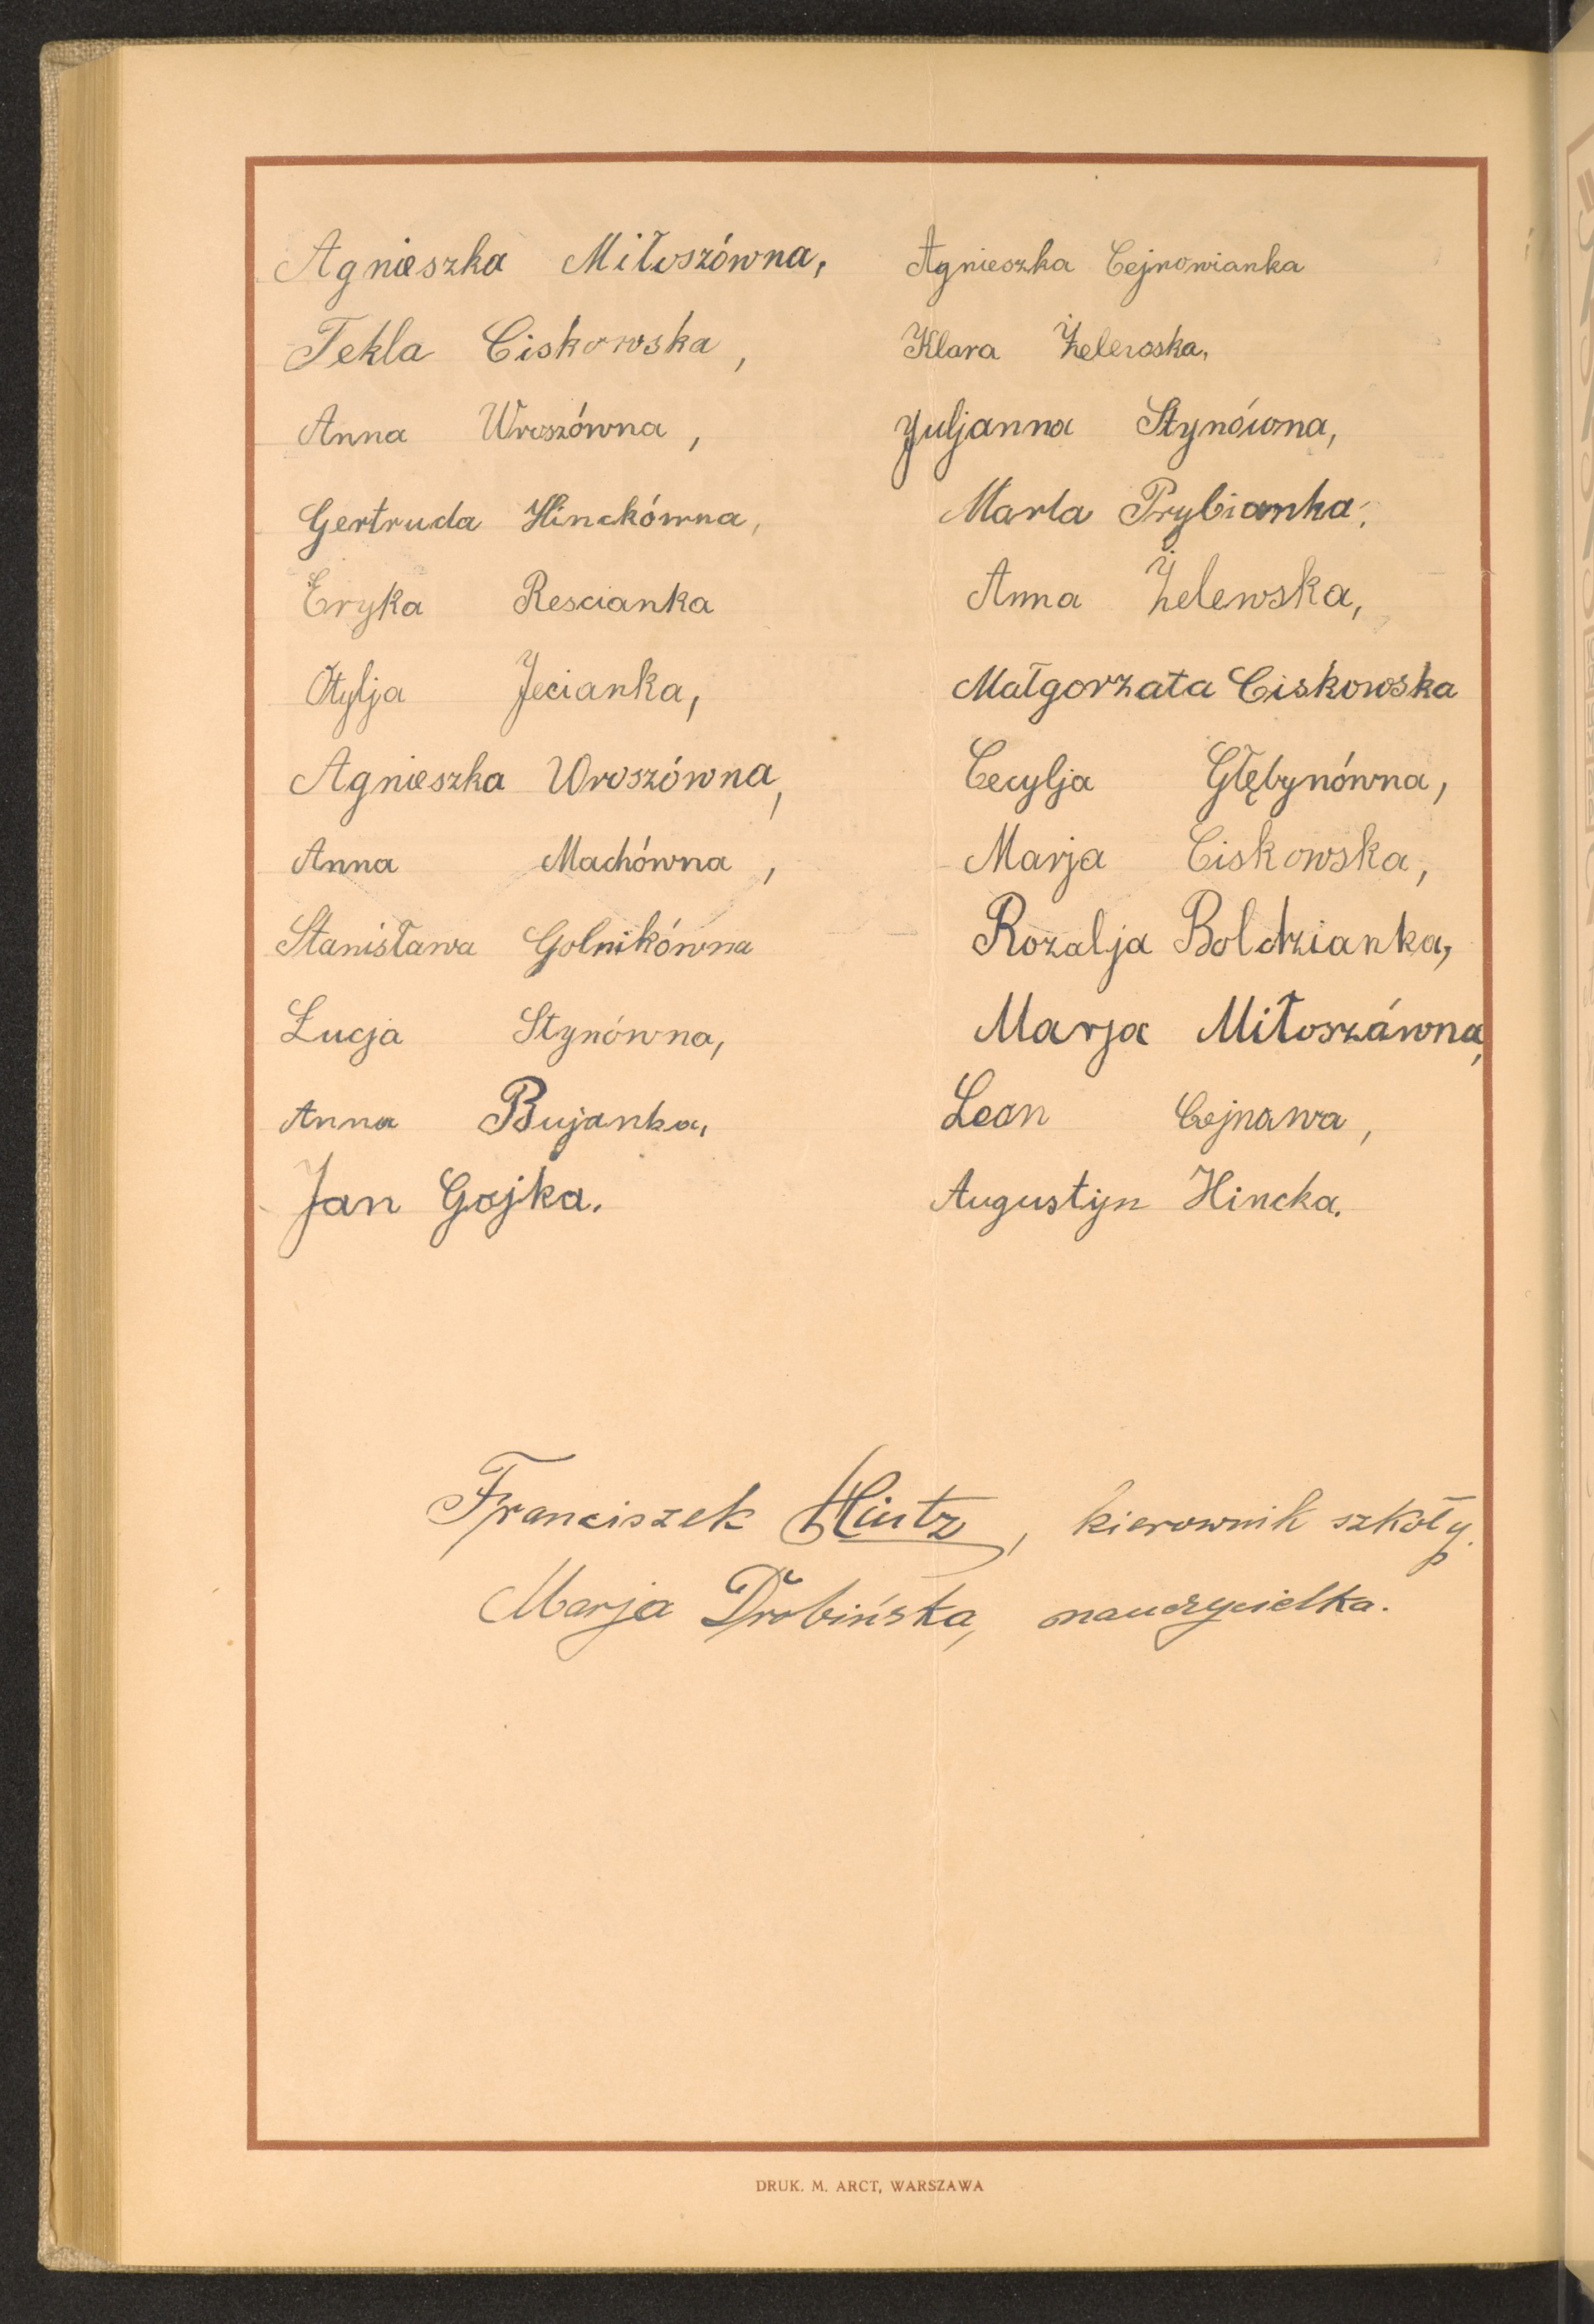 Agnieszka Miłoszówna, Agnieszka Cejnowianka
Tekla Ciskowska, Klara Żelewska,
Anna Wroszówna, Juljanna Stynówna,
Gertruda Hinckówna, Marta Prybianka,
Eryka Rescianka Anna Żelewska,
Otylja Jecianka, Małgorzata Ciskowska
Agnieszka Wroszówna, Cecylja Głębynówna,
Anna Machówna, Marja Ciskowska,
Stanisława Golnikówna Rozalja Boldzianka,
Łucja Stynówna, Marja Miłoszówna,
Anna Bujanka, Leon Cejnawa,
Jan Gojka. Augustyn Hincka.
Franciszek Hintz, kierownik szkoły.
Marja Drobińska, nauczycielka.
DRUK. M. ARCT, WARSZAWA